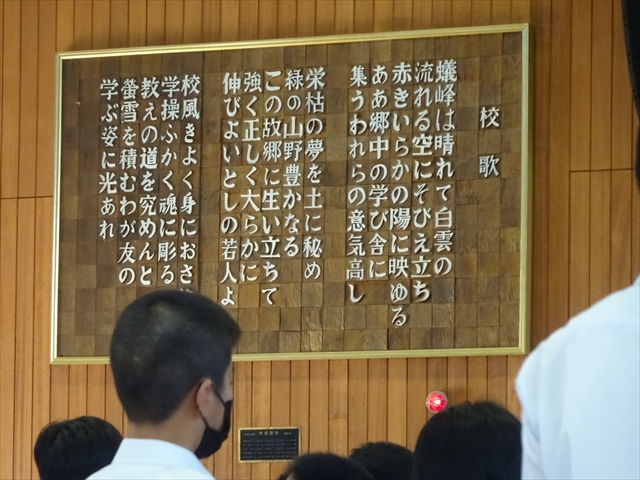 校歌
蟻峰は晴れて白雲の
流れる空にそびえ立ち
赤きいらかの陽に映ゆる
ああ郷中の学び舎に
集うわれらの意気高し
栄枯の夢を土に秘め
緑の山野豊かなる
この故郷に生い立ちて
強く正しく大らかに
伸びよいとしの若人よ
校風きよく身におさ
学操ふかく魂に彫る
教えの道を究めんと
螢雪を積むわが友の
学ぶ姿に光あれ